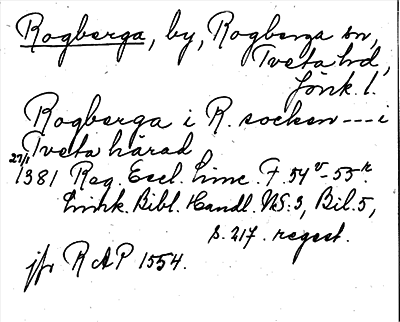 Rogberga, by, Rogberga sn,
Tveta hd,
Jönk. l.
Rogberga i R. socken --- i
Tveta härad
27/1
1381 Reg. Eccl. Linc. F. 54v-55r.
Linck. Bibl. Handl. NS. 3, Bil. 5,
s. 217. regest.
jfr RAP 1554.